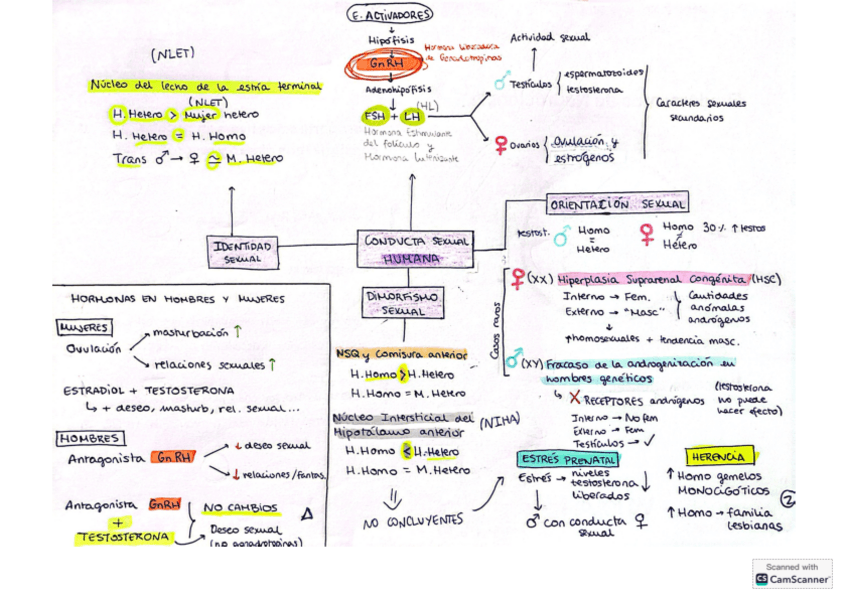 E. ACTIVADORES
Hipófisis
GnRH
Hormona liberadora
de Gonadotropinas
Adenohipófisis
FSH + LH
(HL)
Hormona Estimulante
del folículo y
Hormona Luteinizante
Actividad sexual
♂ Testículos
espermatozoides
testosterona
♀ Ovarios
ovulación y
estrógenos
Caracteres sexuales
secundarios
(NLET)
Núcleo del lecho de la estría terminal
(NLET)
H. Hetero > Mujer hetero
H. Hetero = H. Homo
Trans ♂ → ♀ ≃ M. Hetero
IDENTIDAD
SEXUAL
CONDUCTA SEXUAL
HUMANA
ORIENTACIÓN SEXUAL
testost. ♂ Homo
=
Hetero
♀ Homo 30% ↑ testos
≠
Hetero
DIMORFISMO
SEXUAL
NSQ y Comisura anterior
H. Homo > H. Hetero
H. Homo = M. Hetero
Núcleo Intersticial del
Hipotálamo anterior
(NIHA)
H. Homo < H. Hetero
H. Homo = M. Hetero
⇓
NO CONCLUYENTES
Casos raros
♀ (XX) Hiperplasia Suprarenal Congénita (HSC)
Interno → Fem.
Externo → "Masc"
Cantidades
anómalas
andrógenos
↓
↑homosexuales + tendencia masc.
♂ (XY) Fracaso de la androgenización en
hombres genéticos
↳ X RECEPTORES andrógenos
(testosterona
no puede
hacer efecto)
Interno → No fem
Externo → Fem
Testículos → ✓
ESTRÉS PRENATAL
Estrés → niveles
testosterona ↓
liberados
♂ con conducta ♀
sexual
HERENCIA
↑ Homo gemelos
MONOCIGÓTICOS
↑ Homo → familia
lesbianas
2
HORMONAS EN HOMBRES Y MUJERES
MUJERES
Ovulación
masturbación ↑
relaciones sexuales ↑
ESTRADIOL + TESTOSTERONA
↳ + deseo, masturb, rel. sexual...
HOMBRES
Antagonista GnRH
↓ deseo sexual
↓ relaciones/fantas.
Antagonista GnRH
+
TESTOSTERONA
NO CAMBIOS
Δ
Deseo sexual
(no gonadotropinas)
Scanned with
CS CamScanner